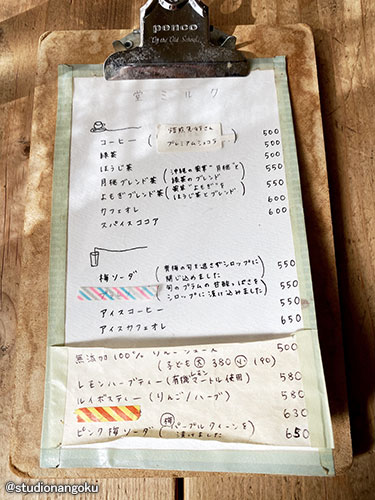 penco
"Up the Old School"
堂ミルク
コーヒー( 焙煎
プレミアムショコラ 500
緑茶 500
ほうじ茶 500
月桃ブレンド茶(沖縄の薬草"月桃"と緑茶のブレンド) 550
よもぎブレンド茶(薬草"よもぎ"をほうじ茶とブレンド) 550
カフェオレ 600
スパイスココア 600
梅ソーダ(青梅の旬を逃さずシロップに閉じ込めました) 550
(旬のプラムの甘酸っぱさをシロップに漬け込みました)
アイスコーヒー
アイスカフェオレ 650
無添加100%りんごジュース 500
(子ども 大 380 小 190)
レモンハーブティー(有機レモンマートル使用) 580
ルイボスティー(りんご/ハーブ) 580
630
ピンク梅ソーダ(梅 パープルクイーンを漬けました) 650
@studionangoku